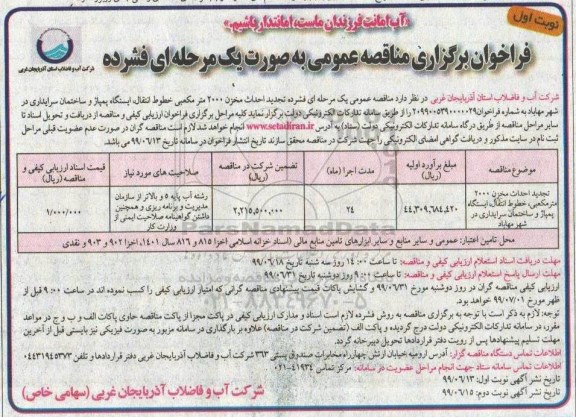 نوبت اول
«آب امانت فرزندان ماست، امانتدار باشیم.»
شرکت آب و فاضلاب استان آذربایجان غربی
فراخوان برگزاری مناقصه عمومی به صورت یک مرحله ای فشرده
شرکت آب و فاضلاب استان آذربایجان غربی در نظر دارد مناقصه عمومی یک مرحله ای فشرده تجدید احداث مخزن ۲۰۰۰ متر مکعبی خطوط انتقال، ایستگاه پمپاژ و ساختمان سرایداری در
شهر مهاباد به شماره فراخوان ۲۰۹۹۰۰۵۳۹۰۰۰۰۰۲۹ را از طریق سامانه تدارکات الکترونیکی دولت برگزار نماید کلیه مراحل برگزاری فراخوان ارزیابی کیفی و مناقصه از دریافت و تحویل اسناد تا
سایر مراحل مناقصه از طریق درگاه سامانه تدارکات الکترونیکی دولت (ستاد) به آدرس www.setadiran.ir انجام خواهد شد لازم است مناقصه گران در صورت عدم عضویت قبلی مراحل
ثبت نام در سایت مذکور و دریافت گواهی امضای الکترونیکی را جهت شرکت در مناقصه محقق سازند تاریخ انتشار فراخوان در سامانه تاریخ ۹۹/۰۶/۱۳ می باشد.
موضوع مناقصه	مبلغ برآورد اولیه (ریال)	مدت اجرا (ماه)	تضمین شرکت در مناقصه (ریال)	صلاحیت های مورد نیاز	قیمت اسناد ارزیابی کیفی و مناقصه (ریال)
تجدید احداث مخزن ۲۰۰۰ مترمکعبی، خطوط انتقال، ایستگاه پمپاژ و ساختمان سرایداری در شهر مهاباد	۴۴,۳۰۹,۶۸۴,۴۲۰	۲۴	۲,۲۱۵,۵۰۰,۰۰۰	رشته آب پایه ۵ و بالاتر از سازمان مدیریت و برنامه ریزی و همچنین داشتن گواهینامه صلاحیت ایمنی از وزارت کار	۱/۰۰۰/۰۰۰
محل تامین اعتبار: عمومی و سایر منابع و سایر ابزارهای تامین منابع مالی (اسناد خزانه اسلامی اخزا ۸۱۵ و ۸۱۶ سال ۱۴۰۱، اخزا ۹۰۲ و ۹۰۳ و نقدی
مهلت دریافت اسناد استعلام ارزیابی کیفی و مناقصه: تا ساعت ۱۴:۰۰ روز سه شنبه تاریخ ۹۹/۰۶/۱۸
مهلت ارسال پاسخ استعلام ارزیابی کیفی و مناقصه: تا ساعت ۹:۰۰ روز دوشنبه تاریخ ۹۹/۰۶/۳۱
ارزیابی کیفی مناقصه گران در روز دوشنبه مورخ ۹۹/۰۶/۳۱ و گشایش پاکات قیمت پیشنهادی مناقصه گرانی که امتیاز ارزیابی کیفی را کسب نموده اند در ساعت ۹:۰۰ قبل از
ظهر مورخ ۹۹/۰۷/۰۱ خواهد بود.
توجه: لازم به ذکر است با توجه به برگزاری مناقصه به روش فشرده لازم است اسناد و مدارک ارزیابی کیفی در پاکت مجزا از پاکت مناقصه حاوی پاکات الف و ب و ج در مواعد
مقرر، در سامانه تدارکات الکترونیکی دولت درج گردیده و پاکت الف (تضمین شرکت در مناقصه) علاوه بر بارگذاری در سامانه مزبور به صورت فیزیکی نیز بایستی قبل از آخرین
مهلت تسلیم پیشنهادها پس از رویت دفتر قراردادها تحویل دبیرخانه گردد.
اطلاعات تماس دستگاه مناقصه گزار: آدرس ارومیه خیابان ارتش چهارراه مخابرات صندوق پستی ۳۶۳ شرکت آب و فاضلاب آذربایجان غربی دفتر قراردادها و تلفن ۰۴۴۳۱۹۴۵۳۷۳
اطلاعات تماس سامانه ستاد جهت انجام مراحل عضویت در سامانه: مرکز تماس ۴۱۹۳۴-۰۲۱
تاریخ نشر آگهی نوبت اول: ۹۹/۰۶/۱۳
تاریخ نشر آگهی نوبت دوم: ۹۹/۰۶/۱۵
شرکت آب و فاضلاب آذربایجان غربی (سهامی خاص)
ParsNamadData
۰۲۱-۸۸۳۴۹۶۷۰-۵